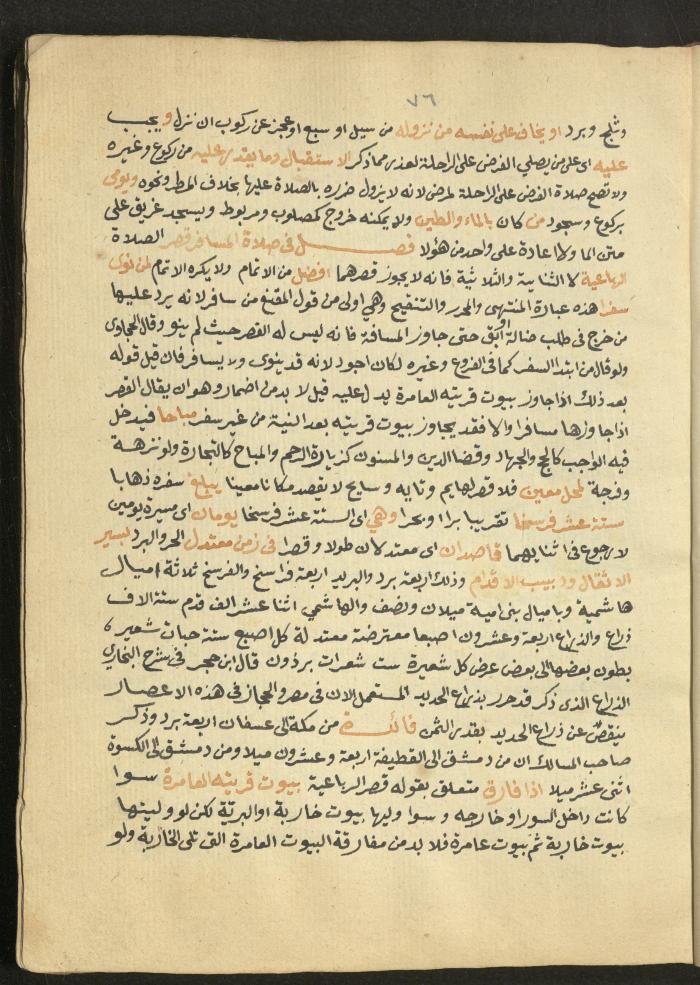 ٧٦
وثلج وبرد او يخاف على نفسه من نزوله من سيل او سبع او عجز عن ركوب ان نزل ويجب
عليه اى على من يصلي الفرض على الراحلة لعذر مما ذكر الاستقبال وما يقدر عليه من ركوع وغيره
ولا تصح صلاة الفرض على الراحلة لمرض لانه لا يزول ضرره بالصلاة عليها بخلاف المطر ونحوه ويومى
بركوع وسجود من كان بالماء والطين ولا يمكنه خروج كمصلوب ومربوط ويسجد غريق على
متن الما ولا اعادة على واحد من هؤلا فصل فى صلاة المسافر قصر الصلاة
الرباعية لا الثنايية والثلاثية فانه لا يجوز قصرهما افضل من الاتمام ولا يكره الاتمام لمن نوى
سفرا هذه عبارة المنتهى والمحرر والتنقيح وهي اولى من قول المقنع من سافر لانه يرد عليها
من خرج فى طلب ضالة او آبق حتى جاوز المسافة فانه ليس له القصر حيث لم ينو وقال الحجاوى
ولو قال من ابتدا السفر كما فى الفروع وغيره لكان اجود لانه قد ينوى ولا يسافر فان قيل قوله
بعد ذلك اذا جاوز بيوت قريته العامرة يدل عليه قيل لا بد من اضمار وهو ان يقال القصر
اذا جاوزها مسافرا والا فقد يجاوز بيوت قريته بعد النية من غير سفر مباحا فيدخل
فيه الواجب كالحج والجهاد وقضا الدين والمسنون كزيارة الرحم والمباح كالتجارة ولو نزهة
وفرجة لمحل معين فلا قصر لهايم وتايه وسايح لا يقصد مكانا معينا يبلغ سفره ذهابا
ستة عشر فرسخا تقريبا برا او بحرا وهي اى الستة عشر فرسخا يومان اى مسيرة يومين
لا رجوع فى اثنايهما قاصدان اى معتدلان طولا وقصرا فى زمن معتدل الحر والبرد بسير
الاثقال ودبيب الاقدام وذلك اربعة برد والبريد اربعة فراسخ والفرسخ ثلاثة اميال
هاشمية وباميال بنى امية ميلان ونصف والهاشمي اثنا عشر الف قدم ستة الاف
ذراع والذراع اربعة وعشرون اصبعا معترضة معتدلة كل اصبع ستة حبات شعير
بطون بعضها الى بعض عرض كل شعيرة ست شعرات برذون قال ابن حجر فى شرح البخاري
الذراع الذى ذكر قد حرر بذراع الحديد المستعمل الان فى مصر والحجاز فى هذه الاعصار
ينقص عن ذراع الحديد بقدر الثمن فائدة من مكة الى عسفان اربعة برد وذكر
صاحب المسالك ان من دمشق الى القطيفة اربعة وعشرون ميلا ومن دمشق الى الكسوة
اثنى عشر ميلا اذا فارق متعلق بقوله قصر الرباعية بيوت قريته العامرة سوا
كانت داخل السور او خارجه وسوا وليها بيوت خاربة او البرية لكن لو وليتها
بيوت خاربة ثم بيوت عامرة فلا بد من مفارقة البيوت العامرة التى تلى الخاربة ولو